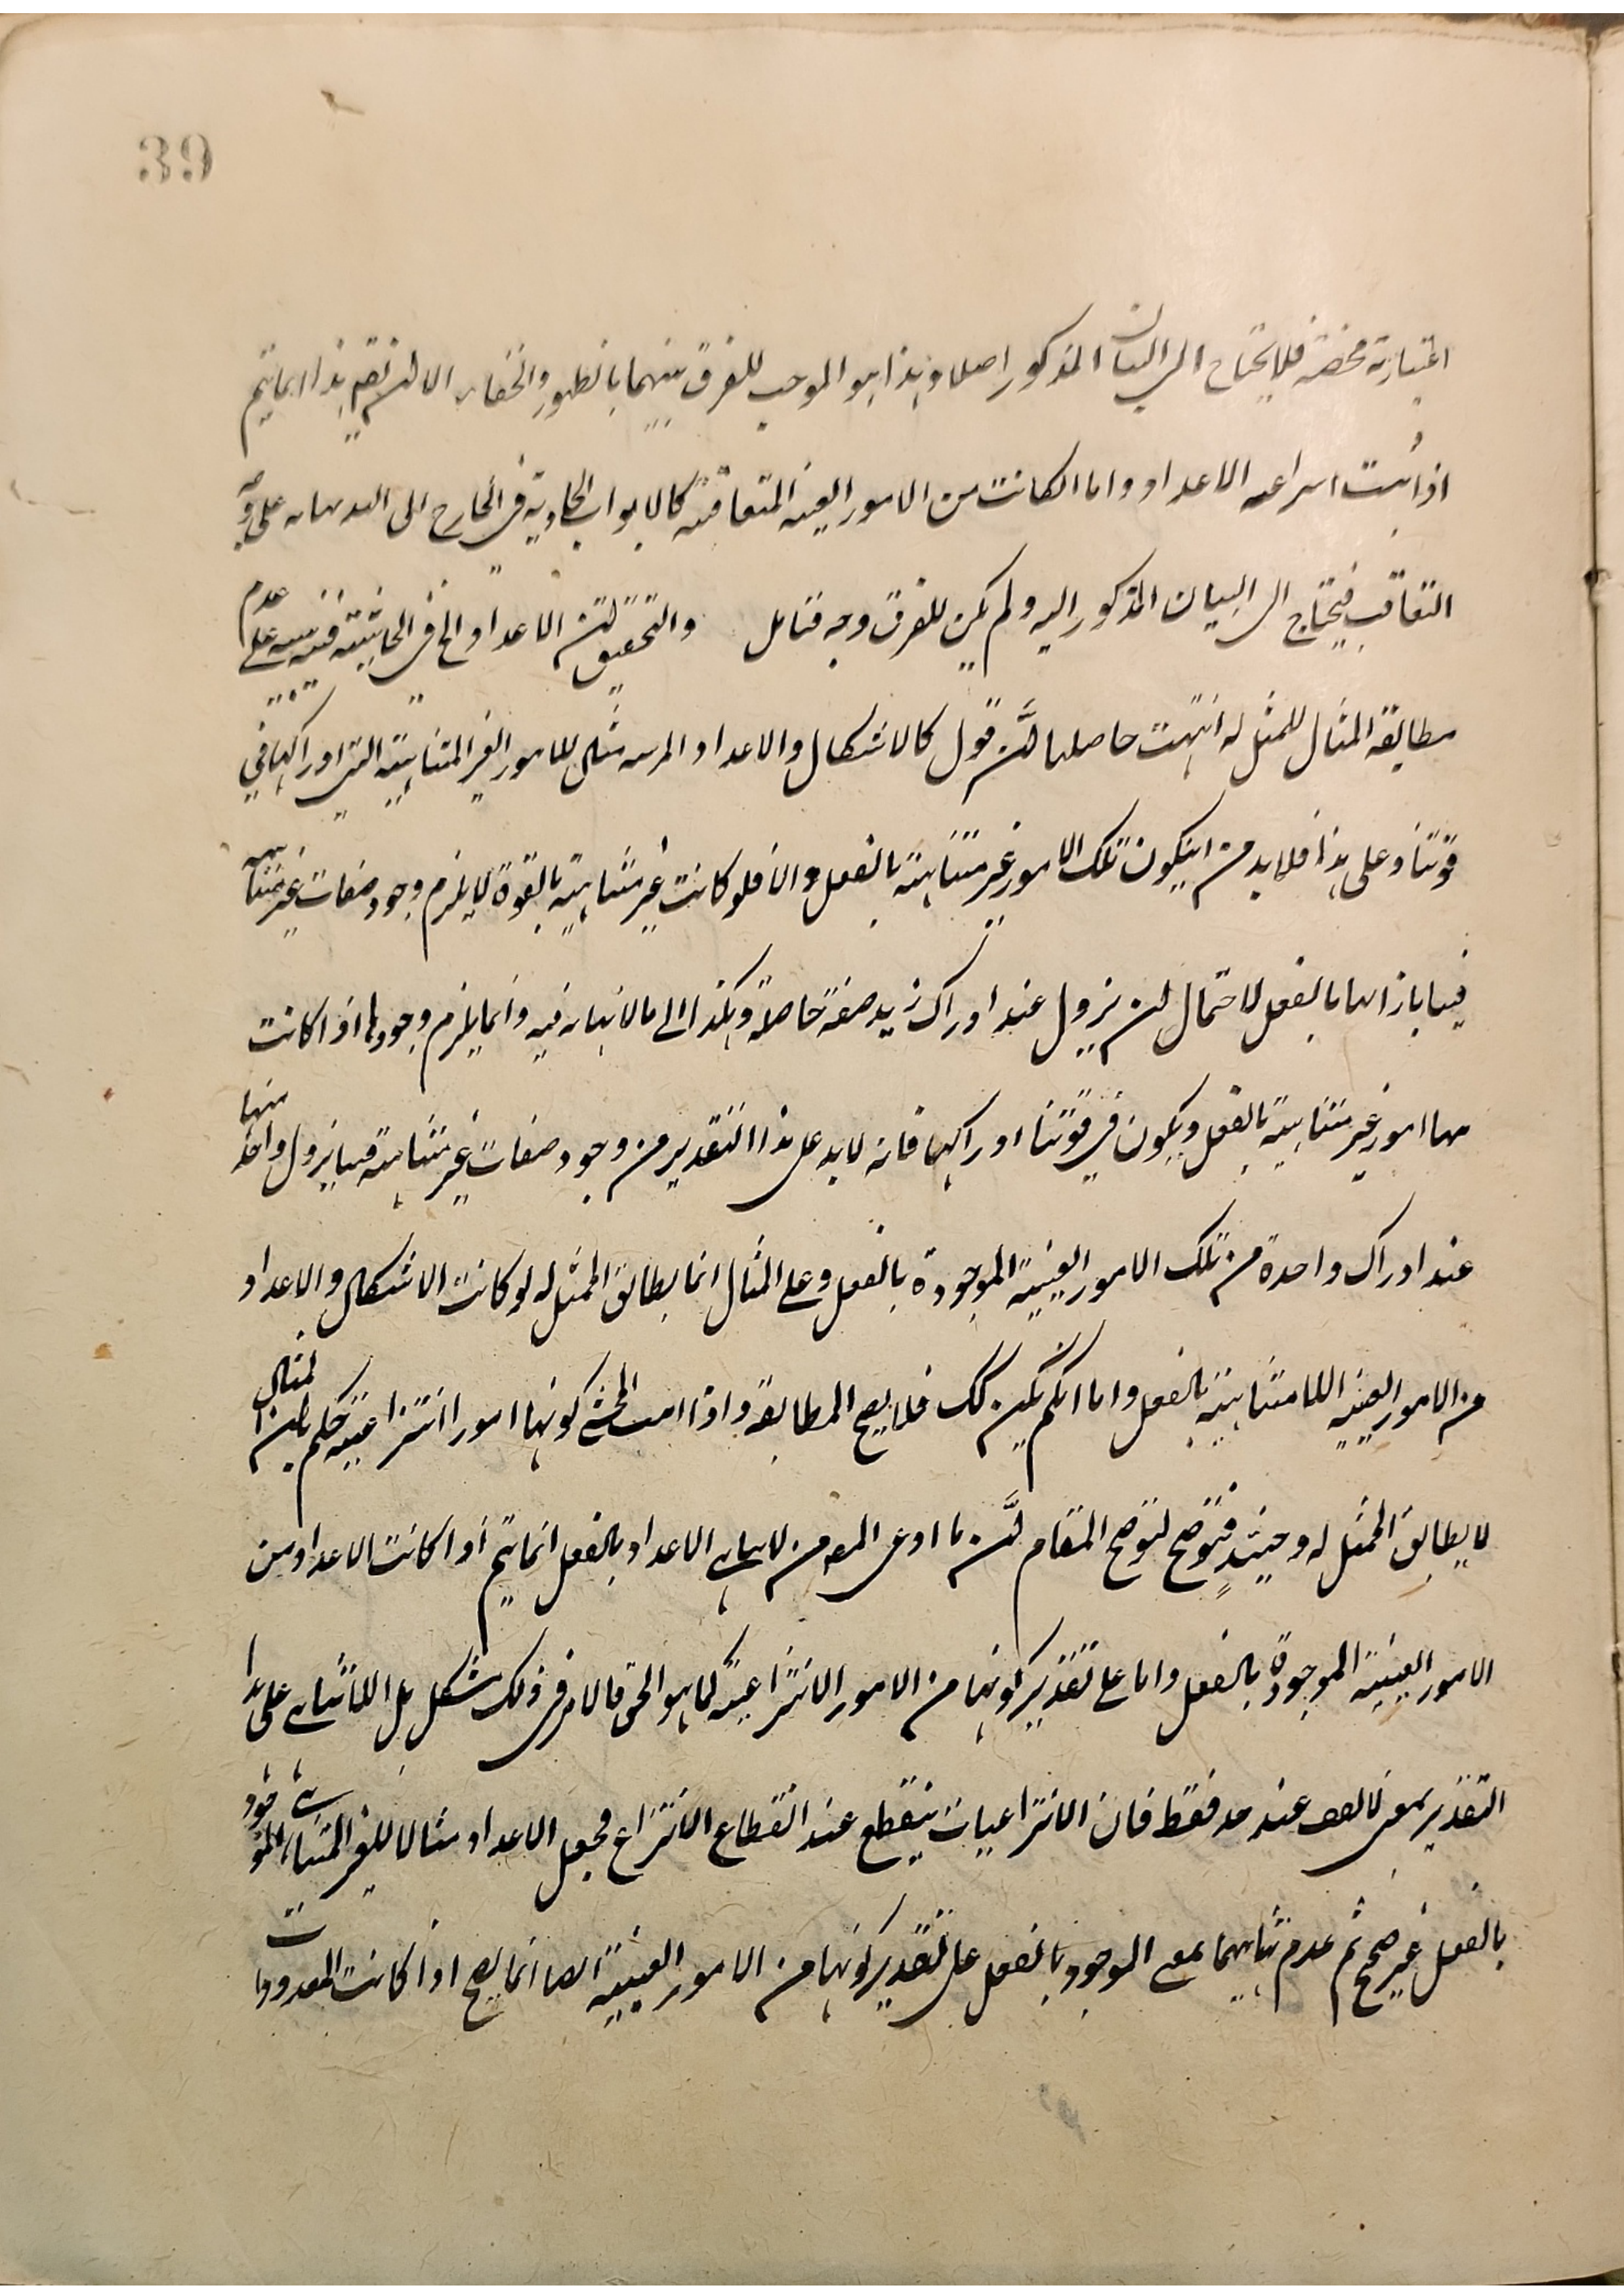 39
اعتبارية محضة فلا يحتاج الى البيان المذكور اصلا وهذا هو الموجب للفرق بينهما بالظهور والخفاء الا ان هذا انما يتم
اذا ثبت الاعداد واما ان كانت من الامور العينية المتعاقبة كالابواب في الخارج الى على وجه
التعاقب فيحتاج الى البيان المذكور اليه ولم يكن للفرق وجه فتامل والتحقيق ان الاعداد الخ في الحاشية فيه تنبيه على عدم
مطابقة المثال للممثل له انتهت حاصلها ان قول كالاشكال والاعداد مثال للامور الغير المتناهية التي ادراكها في
قوتنا وعلى هذا فلا بد من ان يكون تلك الامور غير متناهية بالفعل والا فلو كانت غير متناهية بالقوة لا يلزم وجود صفات غير متناهية
فينا بازائها بالفعل لاحتمال ان يزول عند ادراك زيد صفة خاصة وهكذا الى ما لا نهاية فيه وانما يلزم وجودها اذا كانت
ههنا امور غير متناهية بالفعل ويكون في قوتنا ادراكها فانه لا بد على هذا التقدير من وجود صفات غير متناهية فينا يزول واحد منها
عند ادراك واحدة من تلك الامور العينية الموجودة بالفعل وعلى المثال انما يطابق الممثل له لو كانت الاشكال والاعداد
من الامور العينية اللامتناهية بالفعل واما ان لم يكن كك فلا يصح المطابقة واذا المحشي كونها امورا انتزاعية حكم بان المثال
لا يطابق الممثل له وحينئذ فتوضح لتوضح المقام ان ما ادعى المص من لاتناهي الاعداد بالفعل انما يتم اذا كانت الاعداد من
الامور العينية الموجودة بالفعل واما على تقدير كونها من الامور الانتزاعية كما هو الحق فالامر في ذلك مشكل بل اللاتناهي على هذا
التقدير بمعنى لا يقف عند حد فقط فان الانتزاعيات ينقطع عند انقطاع الانتزاع فجعل الاعداد مثالا للغير المتناهي الموجود
بالفعل غير صحيح ثم عدم تناهيهما بمعنى الموجود بالفعل على تقدير كونها من الامور العينية ايضا انما يصح اذا كانت المعدودات